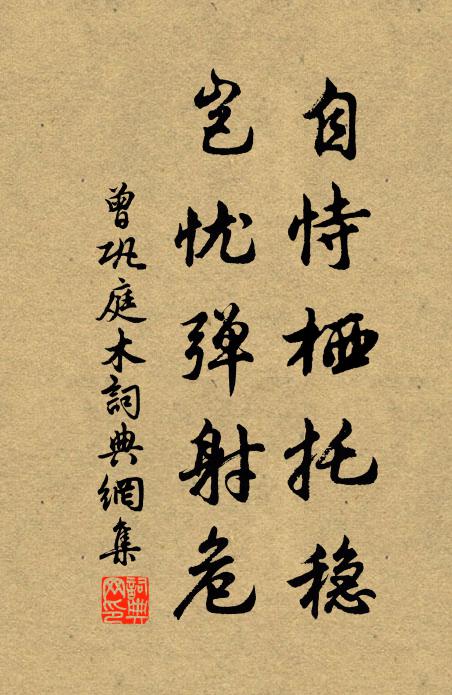 自恃栖托稳
岂忧弹射危
曾巩庭木詞典網集
詞典网印